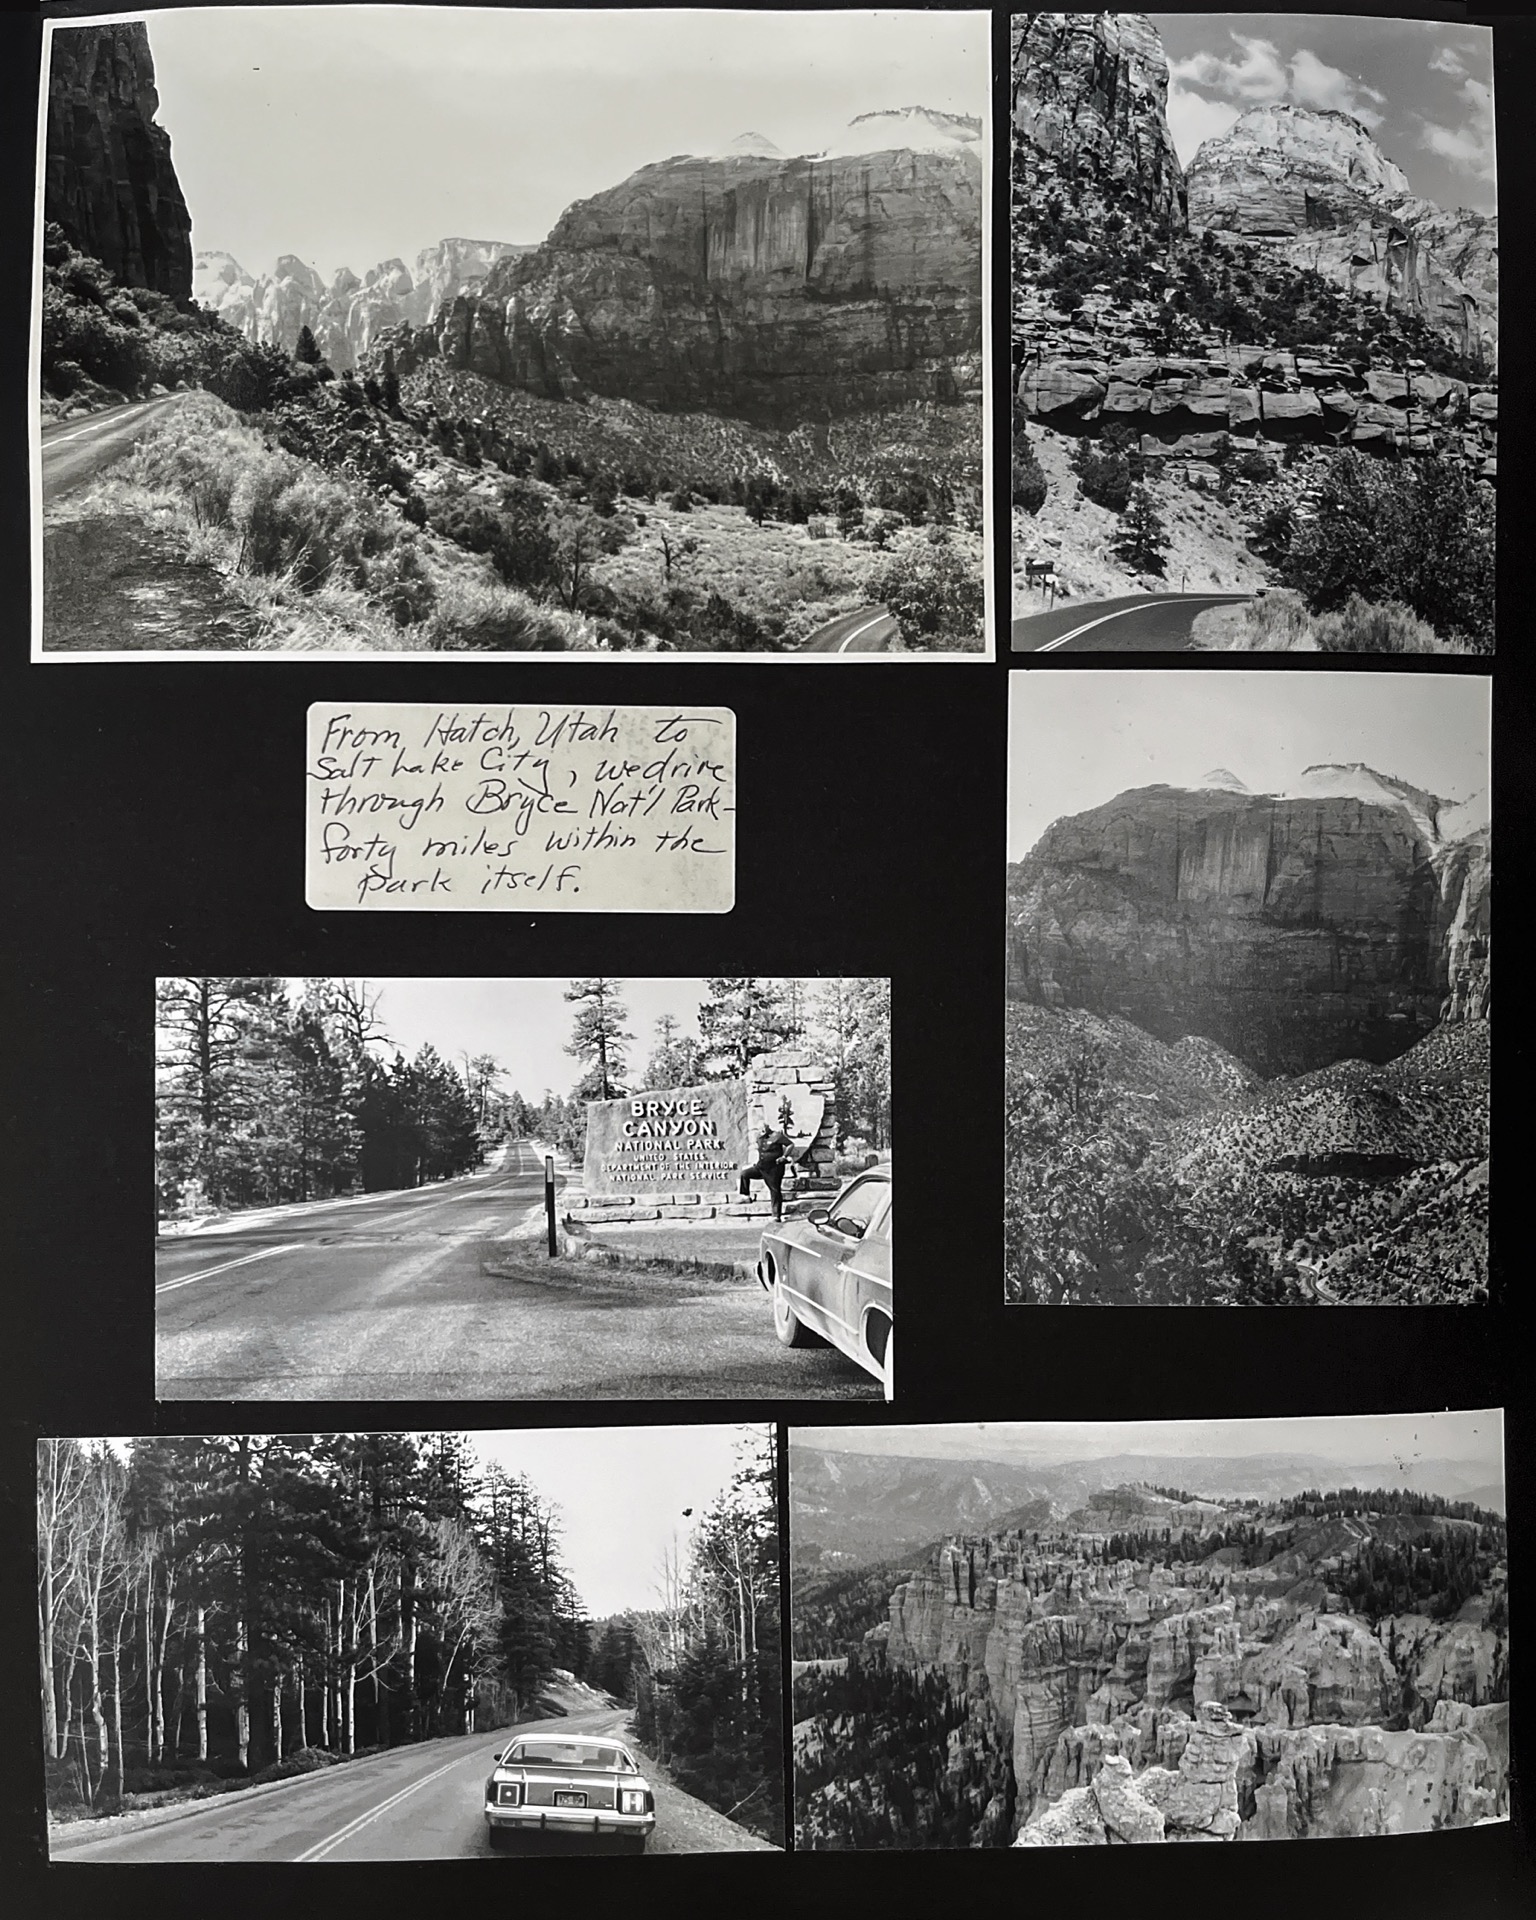 From Hatch, Utah to
Salt Lake City, we drive
through Bryce Nat'l Park-
forty miles within the
park itself.
BRYCE
CANYON
NATIONAL PARK
UNITED STATES
DEPARTMENT OF THE INTERIOR
NATIONAL PARK SERVICE